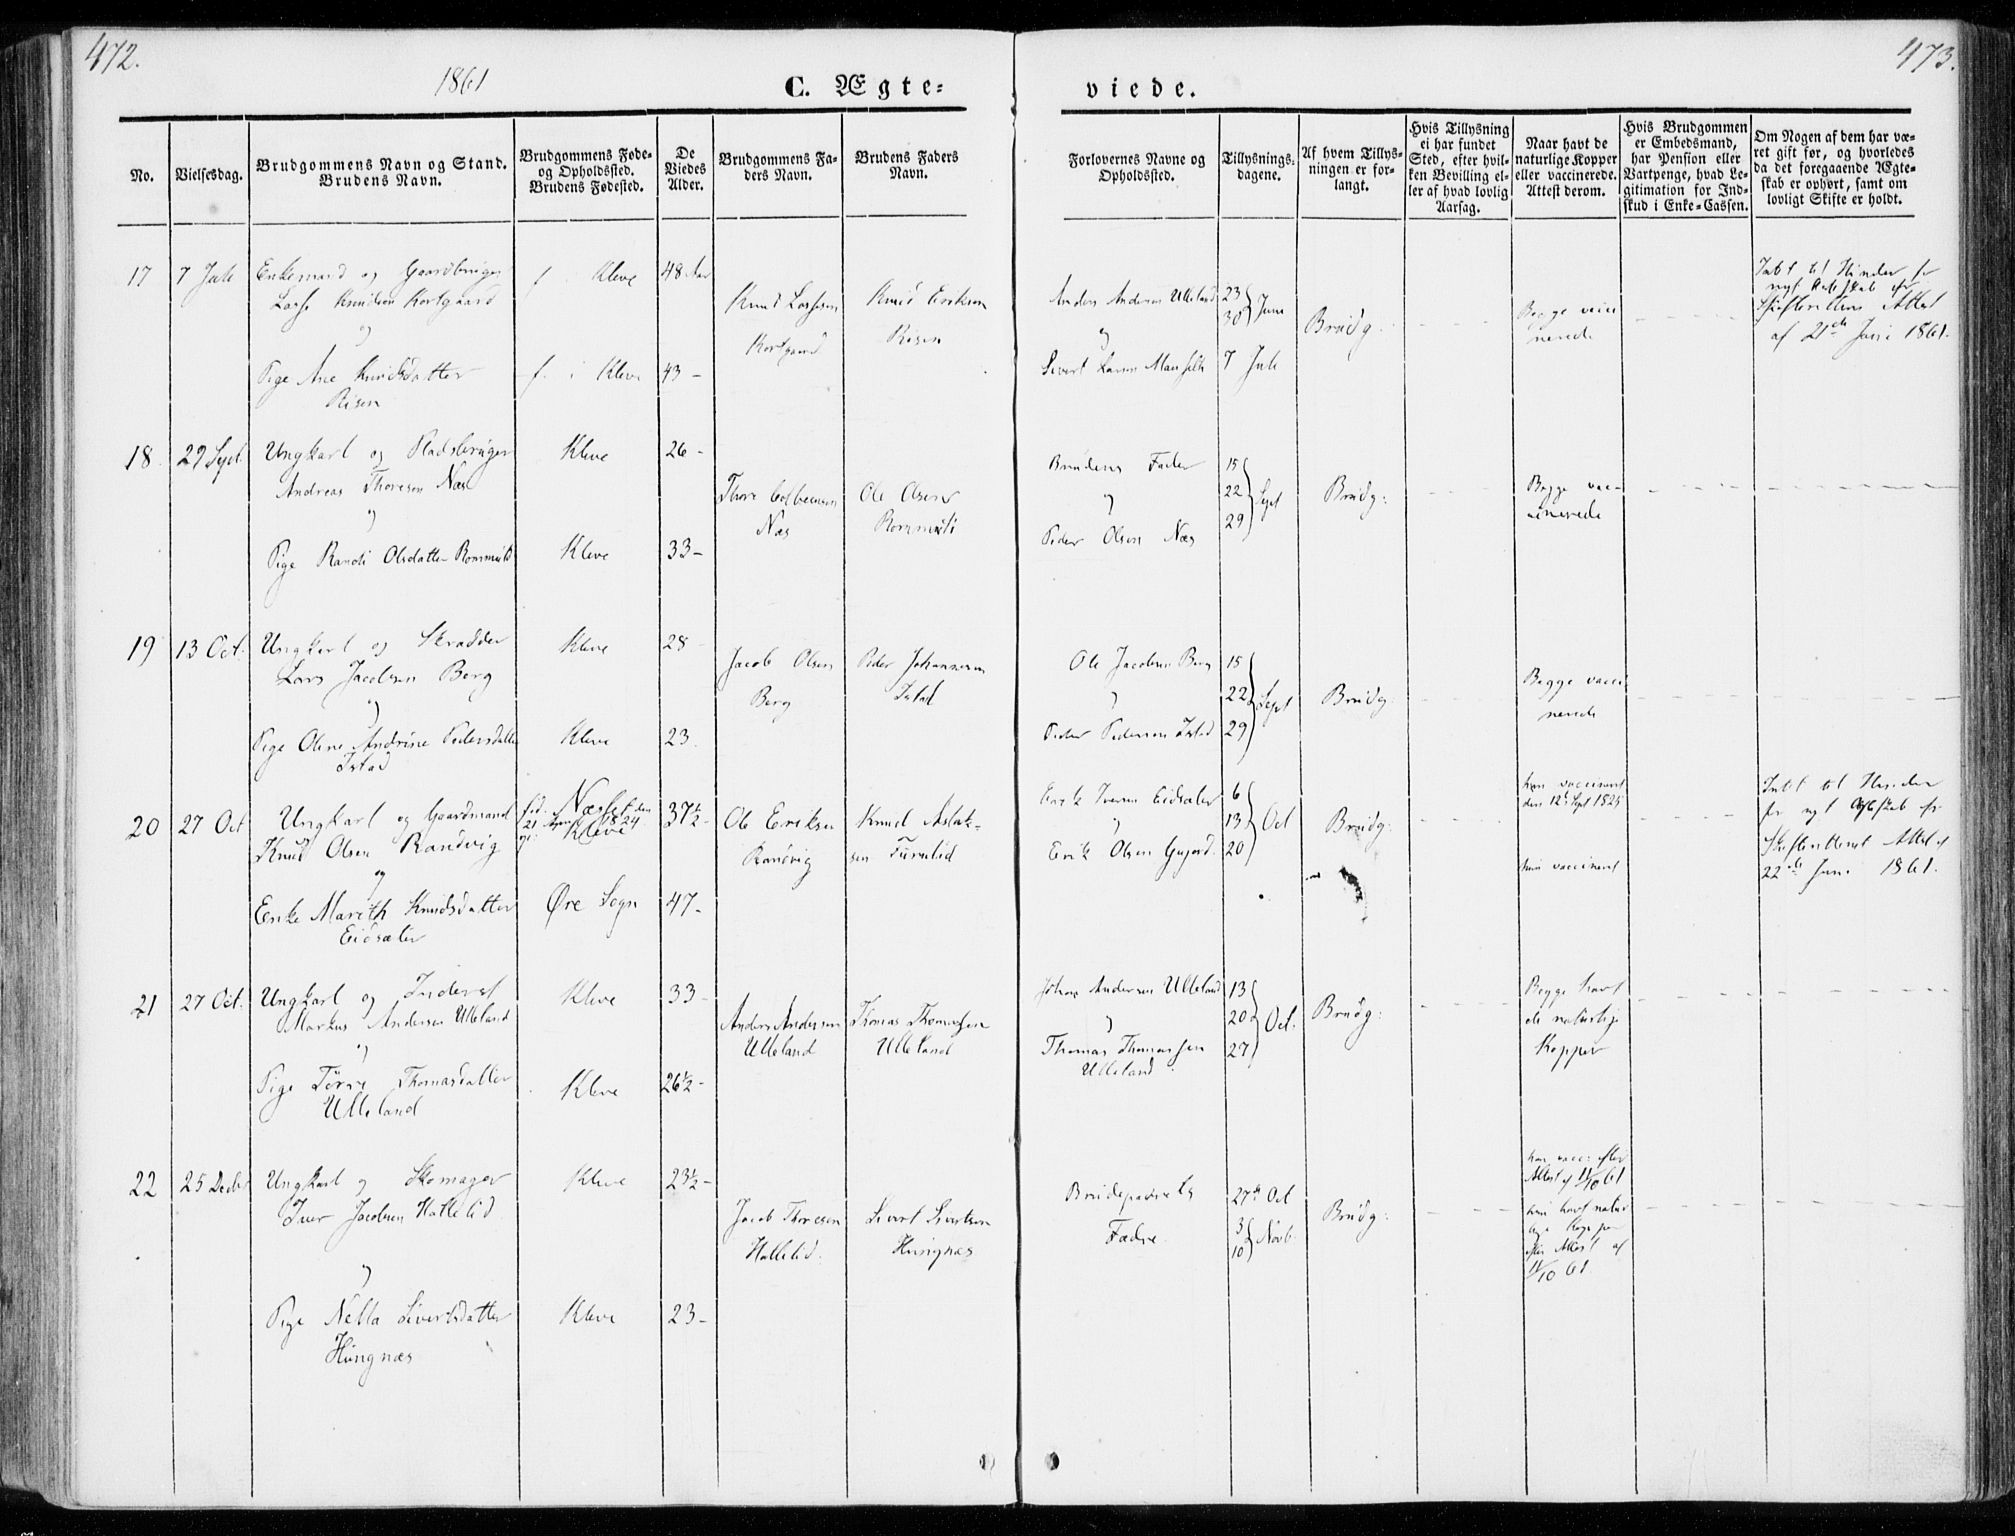 472.
1861
C. Ægte=
No.
Vielsesdag.
Brudgommens Navn og Stand.
Brudens Navn.
Brudgommens Føde-
og Opholdssted.
Brudens Fødested.
De
Viedes
Alder.
Brudgommens Fa-
ders Navn.
Brudens Faders
Navn.
17
7 Juli
Enkemand og Gaardbruger
Lasse Knudsen Kortgaard
og
Pige Ane Knudsdatter
Risen
f. i Kleve
f. i Kleve
48 Aar
43 -
Knud Lassesen
Kortgaard
Knud Eriksen
Risen
18
29 Sept.
Ungkarl og Pladsbruger
Andreas Thoresen Næs
og
Pige Randi Olsdatter
Kleve
Kleve
26 -
33 -
Thore
Næs
Ole Olsen
19
13 Oct.
Ungkarl og Skrædder
Lars Jacobsen Berg
og
Pige Oline Andrine Pedersdatter
Istad
Kleve
Kleve
28 -
23
Jacob Olsen
Berg
Peder Johannesen
Istad
20
27 Oct
Ungkarl og Gaardmand
Knud Olsen Randvig
og
Enke Marith Knudsdatter
Eidsæter
fød: Næsset den
21 1824
Kleve
Øre Sogn
37½ -
47 -
Ole Eriksen
Randvig
Knud Aslak-
sen
21
27 Oct.
Ungkarl og Inderst
Markus Andersen Ulleland
og
Pige Thomasdatter
Ulleland
Kleve
Kleve
33 -
26½ -
Anders Andersen
Ulleland
Thomas Thomassen
Ulleland
22
25 Decbr
Ungkarl og Skomager
Iver Jacobsen Hallelid
og
Pige Nella Sivertsdatter
Hungnæs
Kleve
Kleve
23½ -
23 -
Jacob Thoresen
Hallelid.
Sivert Sivertsen
Hungnæs
473.
viede.
Forlovernes Navne og
Opholdssted.
Tillysnings-
dagene.
Af hvem Tillys-
ningen er for-
langt.
Hvis Tillysning
ei har fundet
Sted, efter hvil-
ken Bevilling el-
ler af hvad lovlig
Aarsag.
Naar havt de
naturlige Kopper
eller vaccinerede.
Attest derom.
Hvis Brudgommen
er Embedsmand,
har Pension eller
Vartpenge, hvad Le-
gitimation for Ind-
skud i Enke=Cassen.
Om Nogen af dem har væ-
ret gift før, og hvorledes
da det foregaaende Ægte-
skab er ophørt, samt om
lovligt Skifte er holdt.
Anders Andersen Ulleland
og
Sivert Larsen
23
30 Juni
7 Juli
Brudg.
Begge vacci
nerede
Intet til Hinder for
nyt Ægteskab efter
Skifterettens Attest
af 21de Juni 1861.
Brudens Fader
og
Peder Olsen Næs
15
22
29
Sept
Brudg:
Begge vac-
cinerede
Ole Jacobsen Berg
og
Peder Pedersen Istad
15
22
29
Sept
Brudg:
Begge vacci
nerede
Erik Iversen Eidsæter
og
Erik Olsen
6
13
20
Oct
Brudg:
han vaccineret
den 12te Sept 1825
hun vaccineret
Intet til Hinder
for nyt Ægteskab efter
Skifterettens Attest af
22de Juni 1861.
Johan Andersen Ulleland
og
Thomas Thomassen
Ulleland
13
20
27
Oct.
Brudg:
Begge havt
de naturlige
Kopper
Brudeparrets
Fædre.
27de Oct
3
10
Novb.
Brudg:
han vacc: efter
Attest af 11/10 61
hun havt natur
lige Kopper
efter Attest af
11/10 61